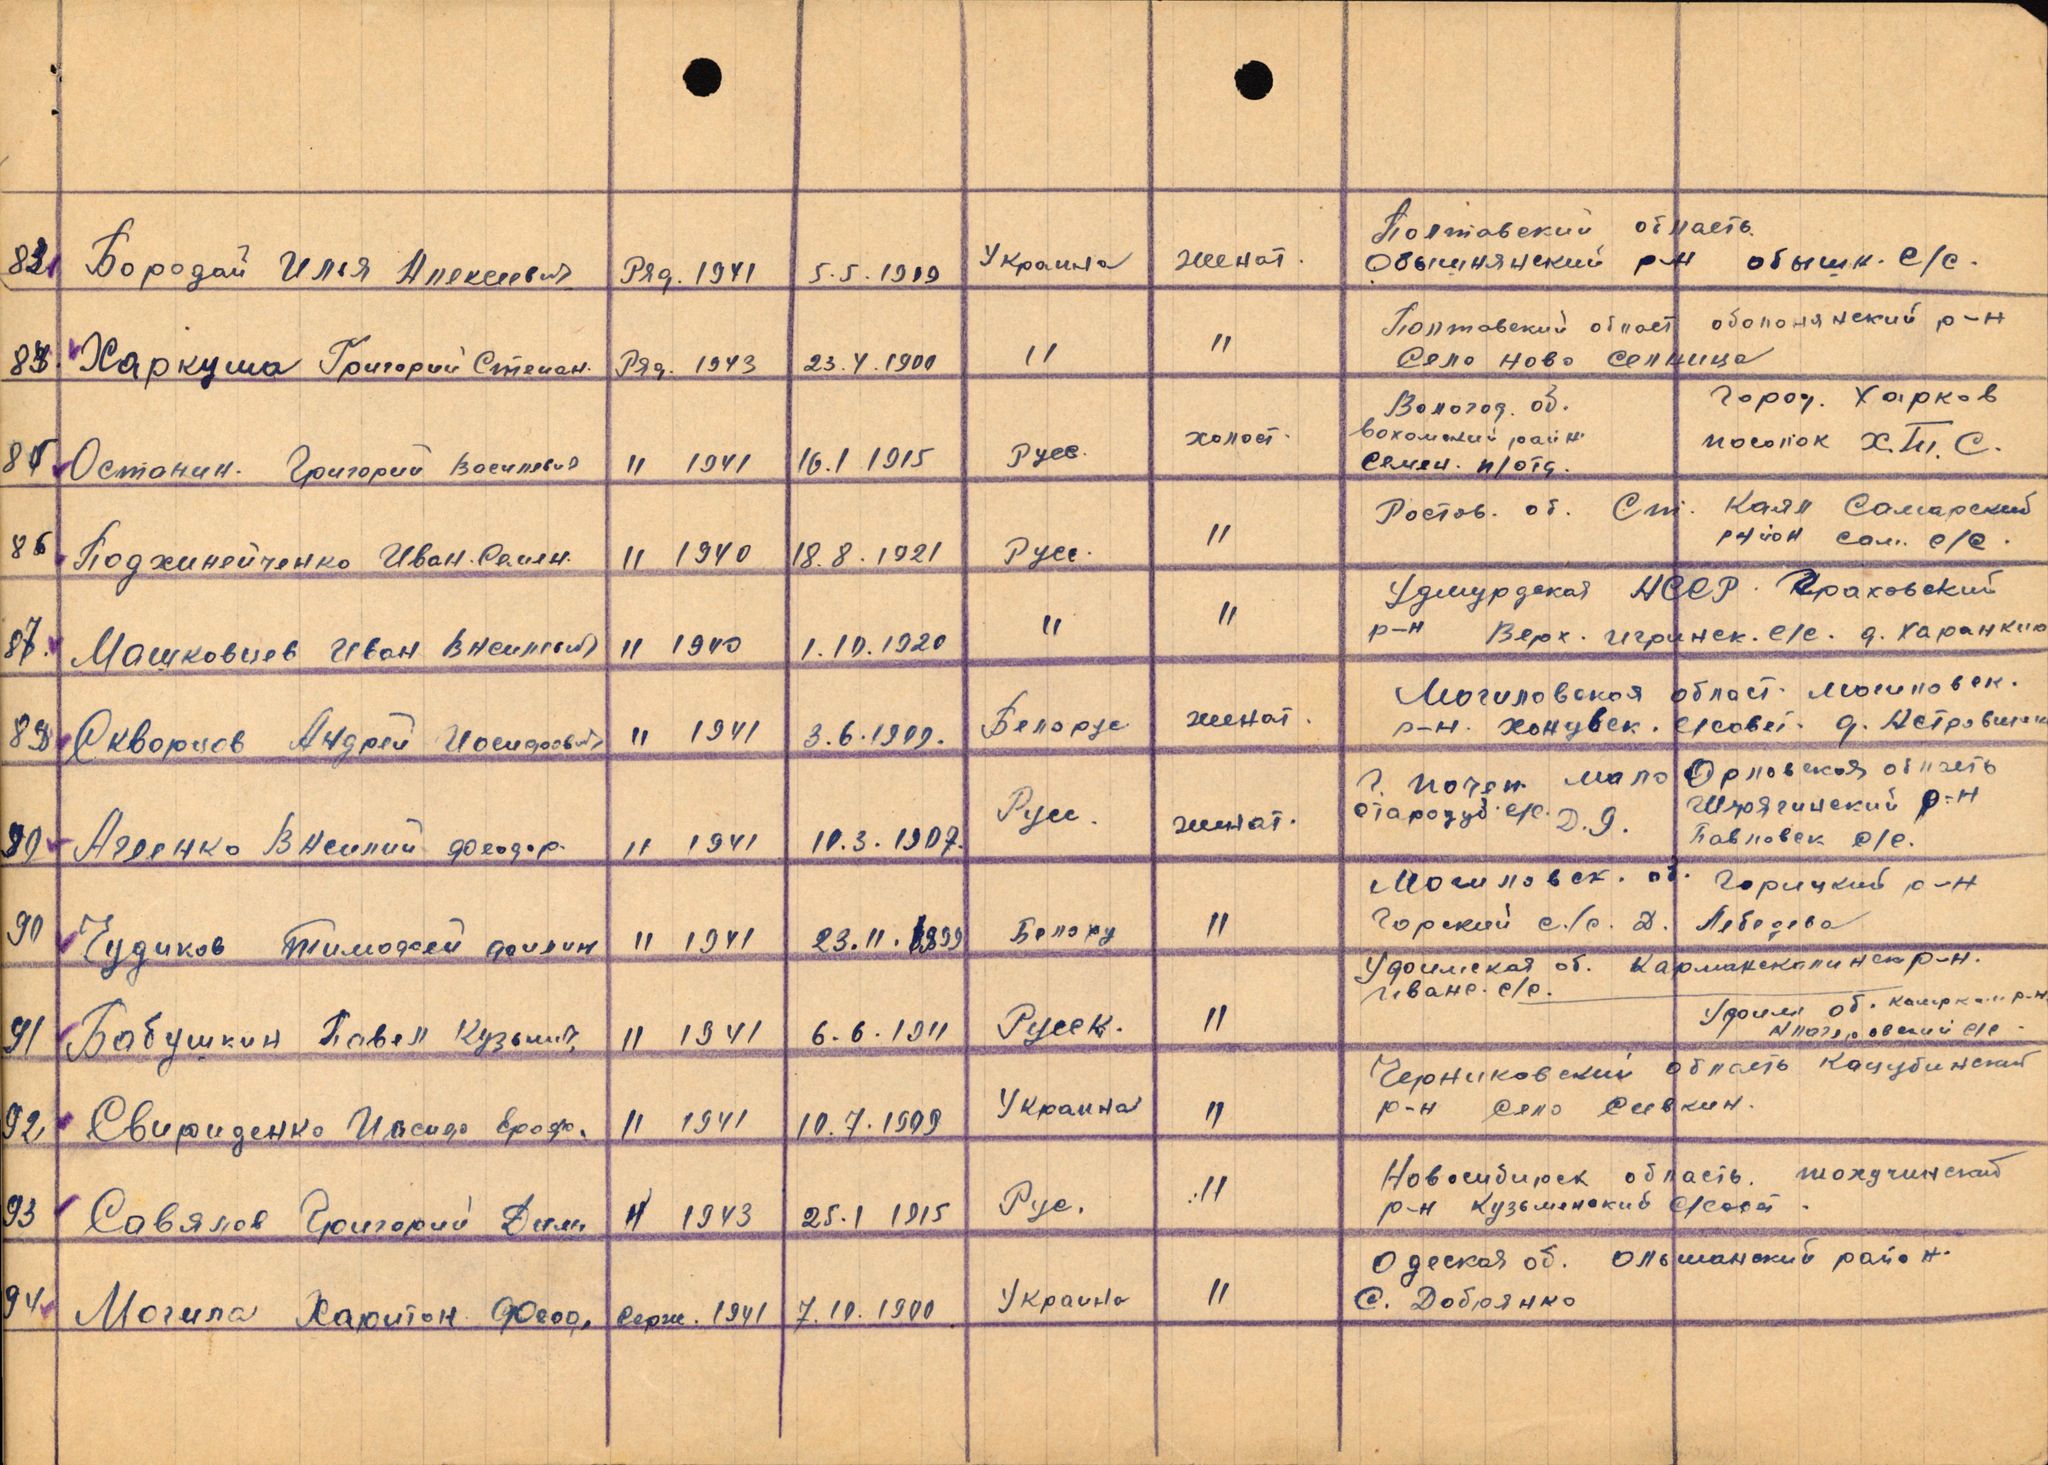 83. Бородай Илья Алексеевич Ряд. 1941 5.5.1909 Украина женат. Полтавский область.
Обышнянский р-н обышн. С/с.
84. Харкуша Григорий Степан. Ряд. 1943 23.4.1900 " " Полтавский област оболонянский р-н
Село ново Селница
85 Останин. Григорий Василевич " 1941 16.1 1915 Русс. холост. Вологод. об. Город. Харков
вохомский район поселок Х.Т.С.
Семен. п/отд.
86 Подхинейченко Иван. Семен. " 1940 18.8.1921 Русс. " Ростов. об. Ст. Каял Самарский
район сам. с/с.
87. Машковцев Иван Василевич " 1940 1.10.1920 " " Удмурдская АССР. Граховский
р-н Верх. игринск. с/с. д. Харанкино
88 Скворцов Андрей Иосифович " 1941 3.6.1909. Белорус женат. Могиловская област. могиловск.
р-н. хонувск. с/совет. д.
89 Агеенко Василий Феодор. " 1941 10.3.1907. Русс. женат. Г. Почеп мало Орловская область
стародуб с/с. Д.Я. р-н
Павловск с/с.
90 Чудиков Тимофей " 1941 23.11.1899 Белору " Могиловск. об. Горицкий р-н
Горский с/с. Д. Лебедева
91 Бабушкин Павел Кузьмич, " 1941 6.6.1911 Русск. " р-н.
Иванс. с/с.
об. р-н
с/с.
92 Свириденко Иосиф " 1941 10.7.1909 Украина " Черниковский область Кацубинский
р-н село Сивкин.
93 Савялов Григорий Дим " 1943 25.1 1915 Рус. " Новосибирск область. тохучинский
р-н Кузьменский с/совт.
94 Могила Харитон Феод. Серж. 1941 7.10.1900 Украина " Одеская об. Ольшанский район.
С. Добрянко